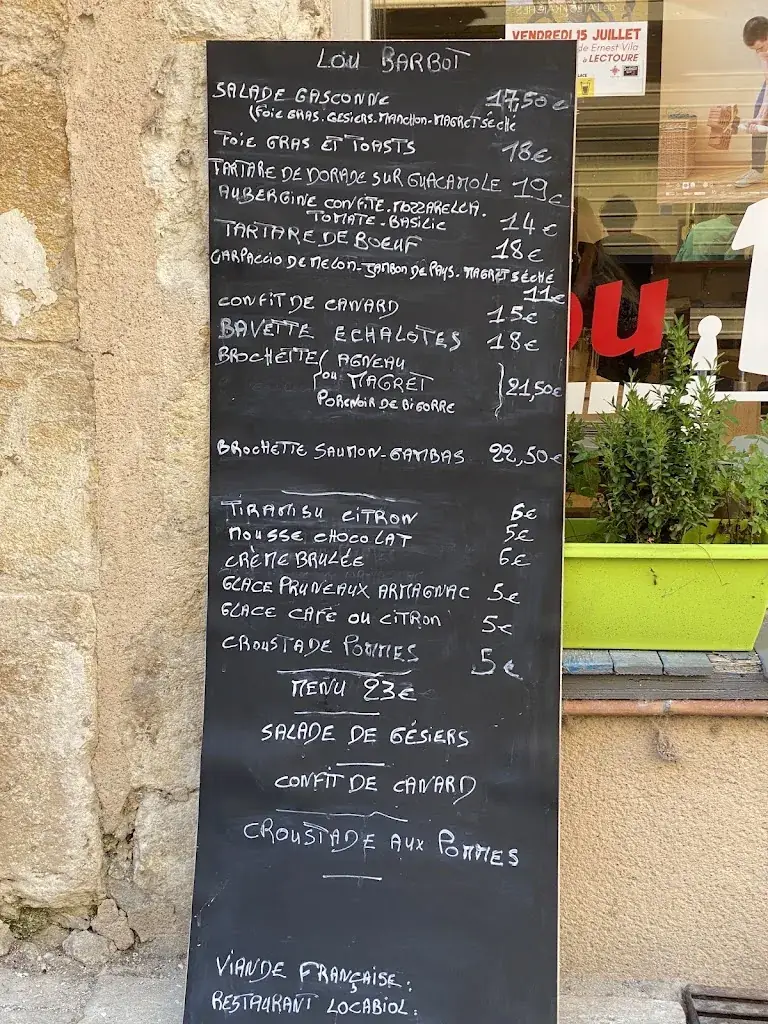 VENDREDI 15 JUILLET
de Ernest Vila
à LECTOURE
LOU BARBOT
SALADE GASCONNE 17,50€
(FOIE GRAS. GESIERS. MANCHON. MAGRET SÉCHÉ
FOIE GRAS ET TOASTS 18€
TARTARE DE DORADE SUR GUACAMOLE 19€
AUBERGINE CONFITE. MOZZARELLA.
TOMATE - BASILIC 14€
TARTARE DE BOEUF 18€
CARPACCIO DE MELON - JAMBON DE PAYS. MAGRET SÉCHÉ
11€
CONFIT DE CANARD 15€
BAVETTE ECHALOTES 18€
BROCHETTE ( AGNEAU
OU MAGRET } 21,50€
PORC NOIR DE BIGORRE
BROCHETTE SAUMON-GAMBAS 22,50€
TIRAMISU CITRON 6€
MOUSSE CHOCOLAT 5€
CRÈME BRULÉE 6€
GLACE PRUNEAUX ARMAGNAC 5€
GLACE CAFE OU CITRON 5€
CROUSTADE POMMES 5€
MENU 23€
SALADE DE GÉSIERS
CONFIT DE CANARD
CROUSTADE AUX POMMES
VIANDE FRANÇAISE.
RESTAURANT LOCABIOL.
ou